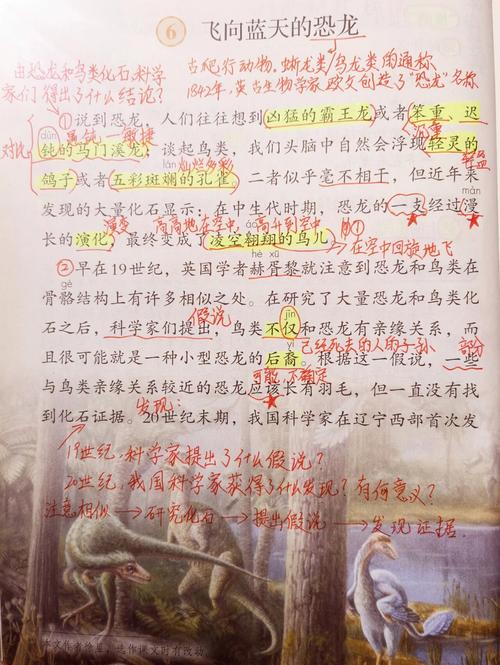 6 飞向蓝天的恐龙
由恐龙和鸟类化石,科学
家们得出了什么结论?
古爬行动物。蜥龙类 鸟龙类 的通称
1842年,英古生物学家欧文创造了"恐龙"名称
①说到恐龙,人们往往想到凶猛的霸王龙或者笨重、迟
对比
dùn
愚钝—敏捷
沉重
钝的马门溪龙;谈起鸟类,我们头脑中自然会浮现轻灵的
灿烂多彩
轻盈
鸽子或者五彩斑斓的孔雀。二者似乎毫不相干,但近年来
màn
发现的大量化石显示:在中生代时期,恐龙的一支经过漫
演变
高高地在空中
高升到空中
长的演化,最终变成了凌空翱翔的鸟儿。
在空中回旋地飞
hè xū
②早在19世纪,英国学者赫胥黎就注意到恐龙和鸟类在
gé
骨骼结构上有许多相似之处。在研究了大量恐龙和鸟类化
假说
jǐn
石之后,科学家们提出,鸟类不仅和恐龙有亲缘关系,而
yì
已经死去的人的子孙
部分
且很可能就是一种小型恐龙的后裔。根据这一假说,一些
可能 不确定
与鸟类亲缘关系较近的恐龙应该长有羽毛,但一直没有找
发现:
到化石证据。20世纪末期,我国科学家在辽宁西部首次发
19世纪,科学家提出了什么假说?
20世纪,我国科学家获得了什么发现?有何意义?
注意相似→研究化石→提出假说→发现证据
本文作者徐星,选作课文时有改动。